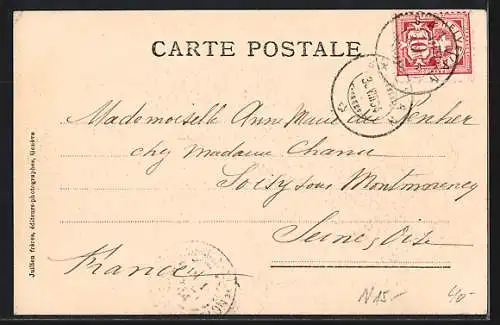 CARTE POSTALE
10
Mademoiselle Anne Marie
chez Madame
Soisy sous Montmorency
Seine & Oise
France
Jullien frères, éditeurs-photographes, Genève
N15-
40-